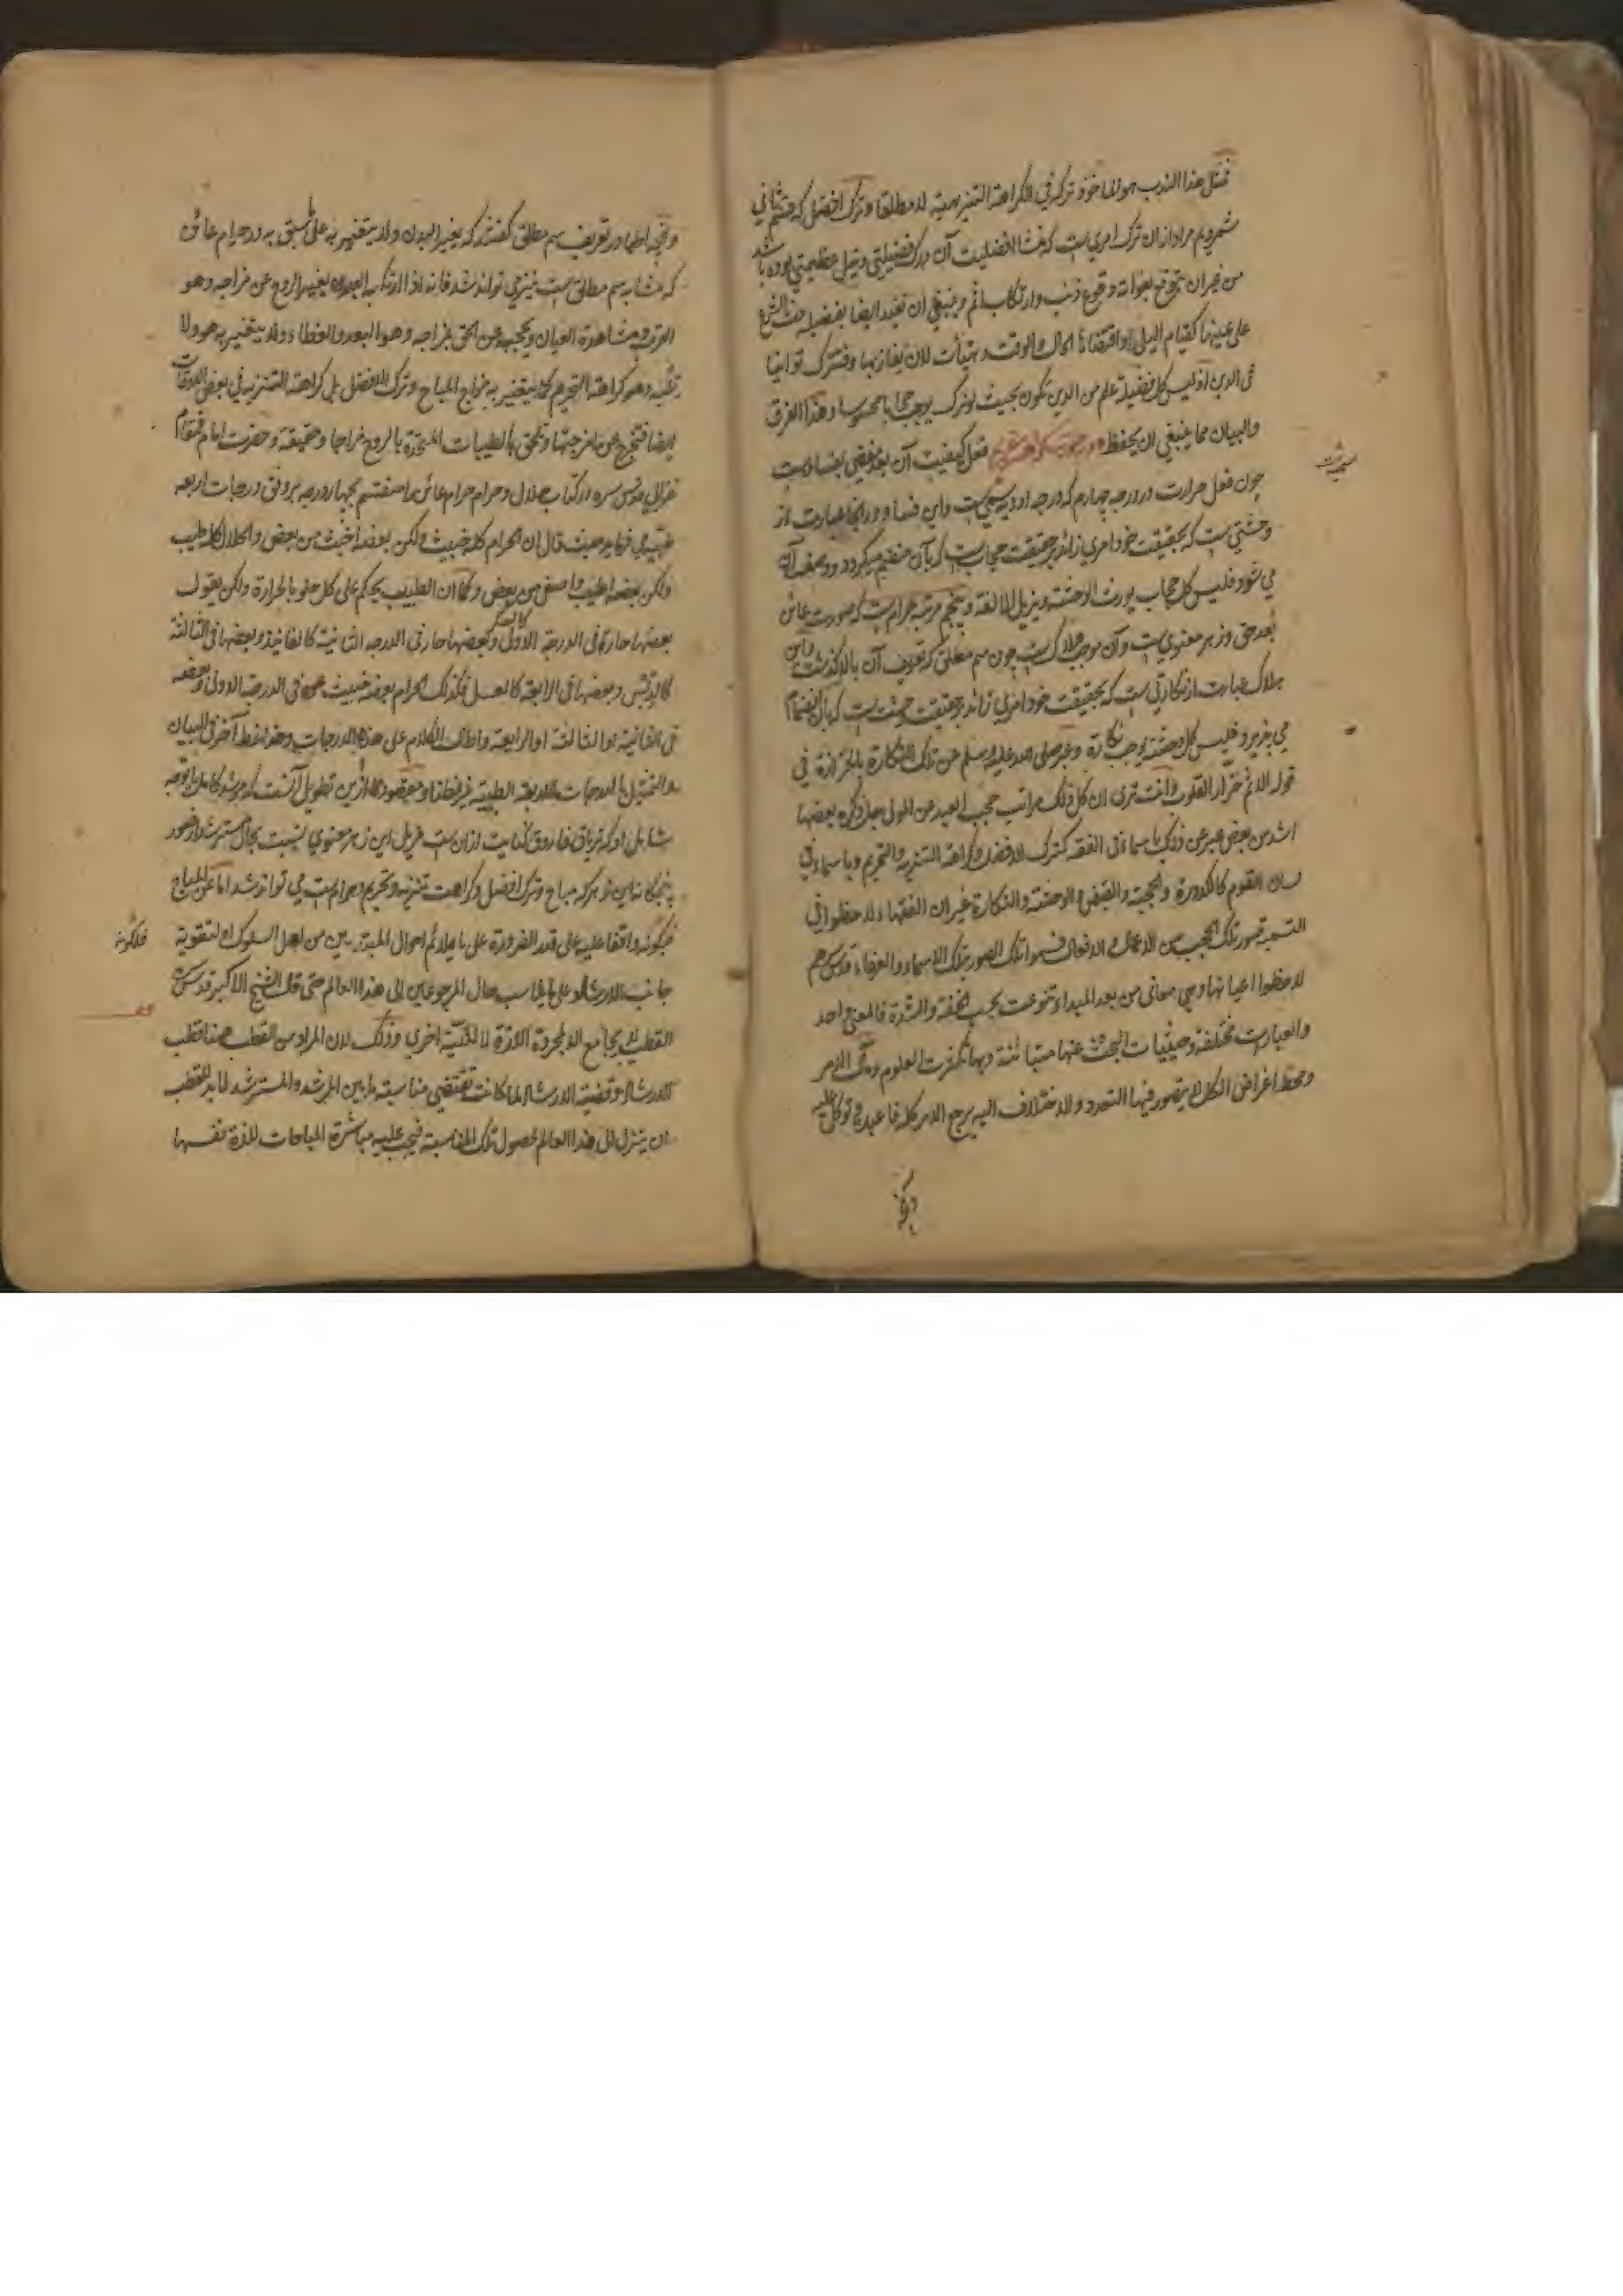 فمثل هذا الندب هو الماخوذ تركه في الكراهة التنزيهية لا مطلقا وترك افضل كه قسم ثاني
شمرديم مراد ازان ترك امري است كه منشا افضليت آن درك فضيلتي ونيل عظيمتي بوده باشد
من غير ان يتوقع بفواته وقوع ذنب وارتكاب اثم وينبغي ان تقيد ايضا بفضيلة حث الشرع
على عينها كقيام الليل او اقتضاها الحال والوقت
في الدين اذ ليس كل فضيلة علم من الدين تكون بحيث لو ترك يوجب حجابا محسوسا وهذا الفرق
والبيان مما ينبغي ان يحفظ فعل كيفيت آن بعد مفضي بفساد است
چون فعل حرارت در درجه چهارم كه درجه ادويه سمي است واين فساد در اينجا عبارت از
وحشتي است كه بحقيقت خود امري زائد بر حقيقت حجاب است كه بآن منضم ميكردد ووصف آن
مي شود فليس كل حجاب يورث الوحشة ويزيل الالفة وپنجم مرتبه حرام است كه صورت عائق
بعد حق وزهر معنوي است وآن موجب هلاك است چون سم مطلق كه تعريف آن بالا كذشت واين
هلاك عبارت از نكارتي است كه بحقيقت خود امري زائد بر حقيقت وحشت است كه بآن انضمام
مي پذيرد فليس كل وحشة يوجب نكارة وعبر صلى الله عليه وسلم عن تلك النكارة بالحزازة في
قوله الاثم حزاز القلوب وانت ترى ان كل ذلك مراتب حجب العبد عن المولى جل ذكره بعضها
اشد من بعض عبر عن ذلك باسماء في الفقه كترك الافضل وكراهة التنزيه والتحريم وباسماء في
لسان القوم كالكدورة والحجبة والقبض والوحشة والنكارة غير ان الفقهاء لاحظوا في
التسمية صور تلك الحجب من الاعمال والافعال فسموا تلك الصور بتلك الاسماء والعرفاء قدس سرهم
لاحظوا اعيانها وهي معاني من بعد المبداء تنوعت بحسب الخفة والشدة فالمعنى واحد
والعبارات مختلفة وحيثيات البحث عنها متبائنة وبها تكثرت العلوم وملاك الامر
ومحط اغراض الكل لا يتصور فيها التعدد والاختلاف اليه يرجع الامر كله فاعبده وتوكل عليه
وآنچه اطبا در تعريف سم مطلق گفته اند كه يغير البدن ولا يتغير به على ما سبق به در حرام عائق
كه مشابه سم مطلق است نيز مي تواند شد فانه اذا ارتكبه العبد يغير الروح عن مزاجه وهو
القرب ومشاهدة العيان ويحجبه عن الحق بمزاجه وهو البعد والغطاء ولا يتغير به هو ولا
وهو كراهة التحريم كما يتغير به مزاج المباح وترك الافضل بل كراهة التنزيه في بعض الاوقات
ايضا فتخرج عن مزجتها وتلحق بالطيبات المتحدة بالروح مزاجا وحقيقة وحضرت امام همام
غزالي قدس سره در كتاب حلال وحرام حرام عائق را منقسم بچهار درجه بر وفق درجات اربعه
طبيه مي فرمايد حيث قال ان الحرام كله خبيث ولكن بعضه اخبث من بعض والحلال كله طيب
ولكن بعضه اطيب واصفى من بعض وكما ان الطبيب يحكم على كل حلو بالحرارة ولكن يقول
بعضها حارة في الدرجة الاولى كالسكر وبعضها حار في الدرجة الثانية كالفانيذ وبعضها في الثالثة
كالدبس وبعضها في الرابعة كالعسل فكذلك الحرام بعضه خبيث في الدرجة الاولى وبعضه
في الثانية او الثالثة او الرابعة واطال الكلام على هذه الدرجات وهذا نمط آخر في البيان
والتمثيل بالدرجات الاربعة الطبية غير نمطنا ومقصود ما ازين تطويل آنست كه مرشد كامل با توجه
شامل او كه ترياق فاروق كنايت ازان است مزيل اين زهر معنوي نسبت بحال مسترشد از صور
پنجگانه اين زهر كه مباح وترك افضل وكراهت تنزيه وتحريم وحرام است مي تواند شد اما عن المباح
فبكونه واقفا عليه على قدر الضرورة على ما يلائم احوال المبتدئين من اهل السلوك او لتقوية
جانب الارشاد على ما يناسب حال المرجوعين الى هذا العالم حتى قال الشيخ الاكبر قدس سره
القطب لا يجامع الا لمجرد اللذة لا لنية اخرى وذلك لان المراد من القطب هنا قطب
الارشاد وقضية الارشاد لما كانت تقتضي مناسبة ما بين المرشد والمسترشد لا بد للقطب
ان ينزل الى هذا العالم لحصول تلك المناسبة فيجب عليه مباشرة المباحات للذة نفسها